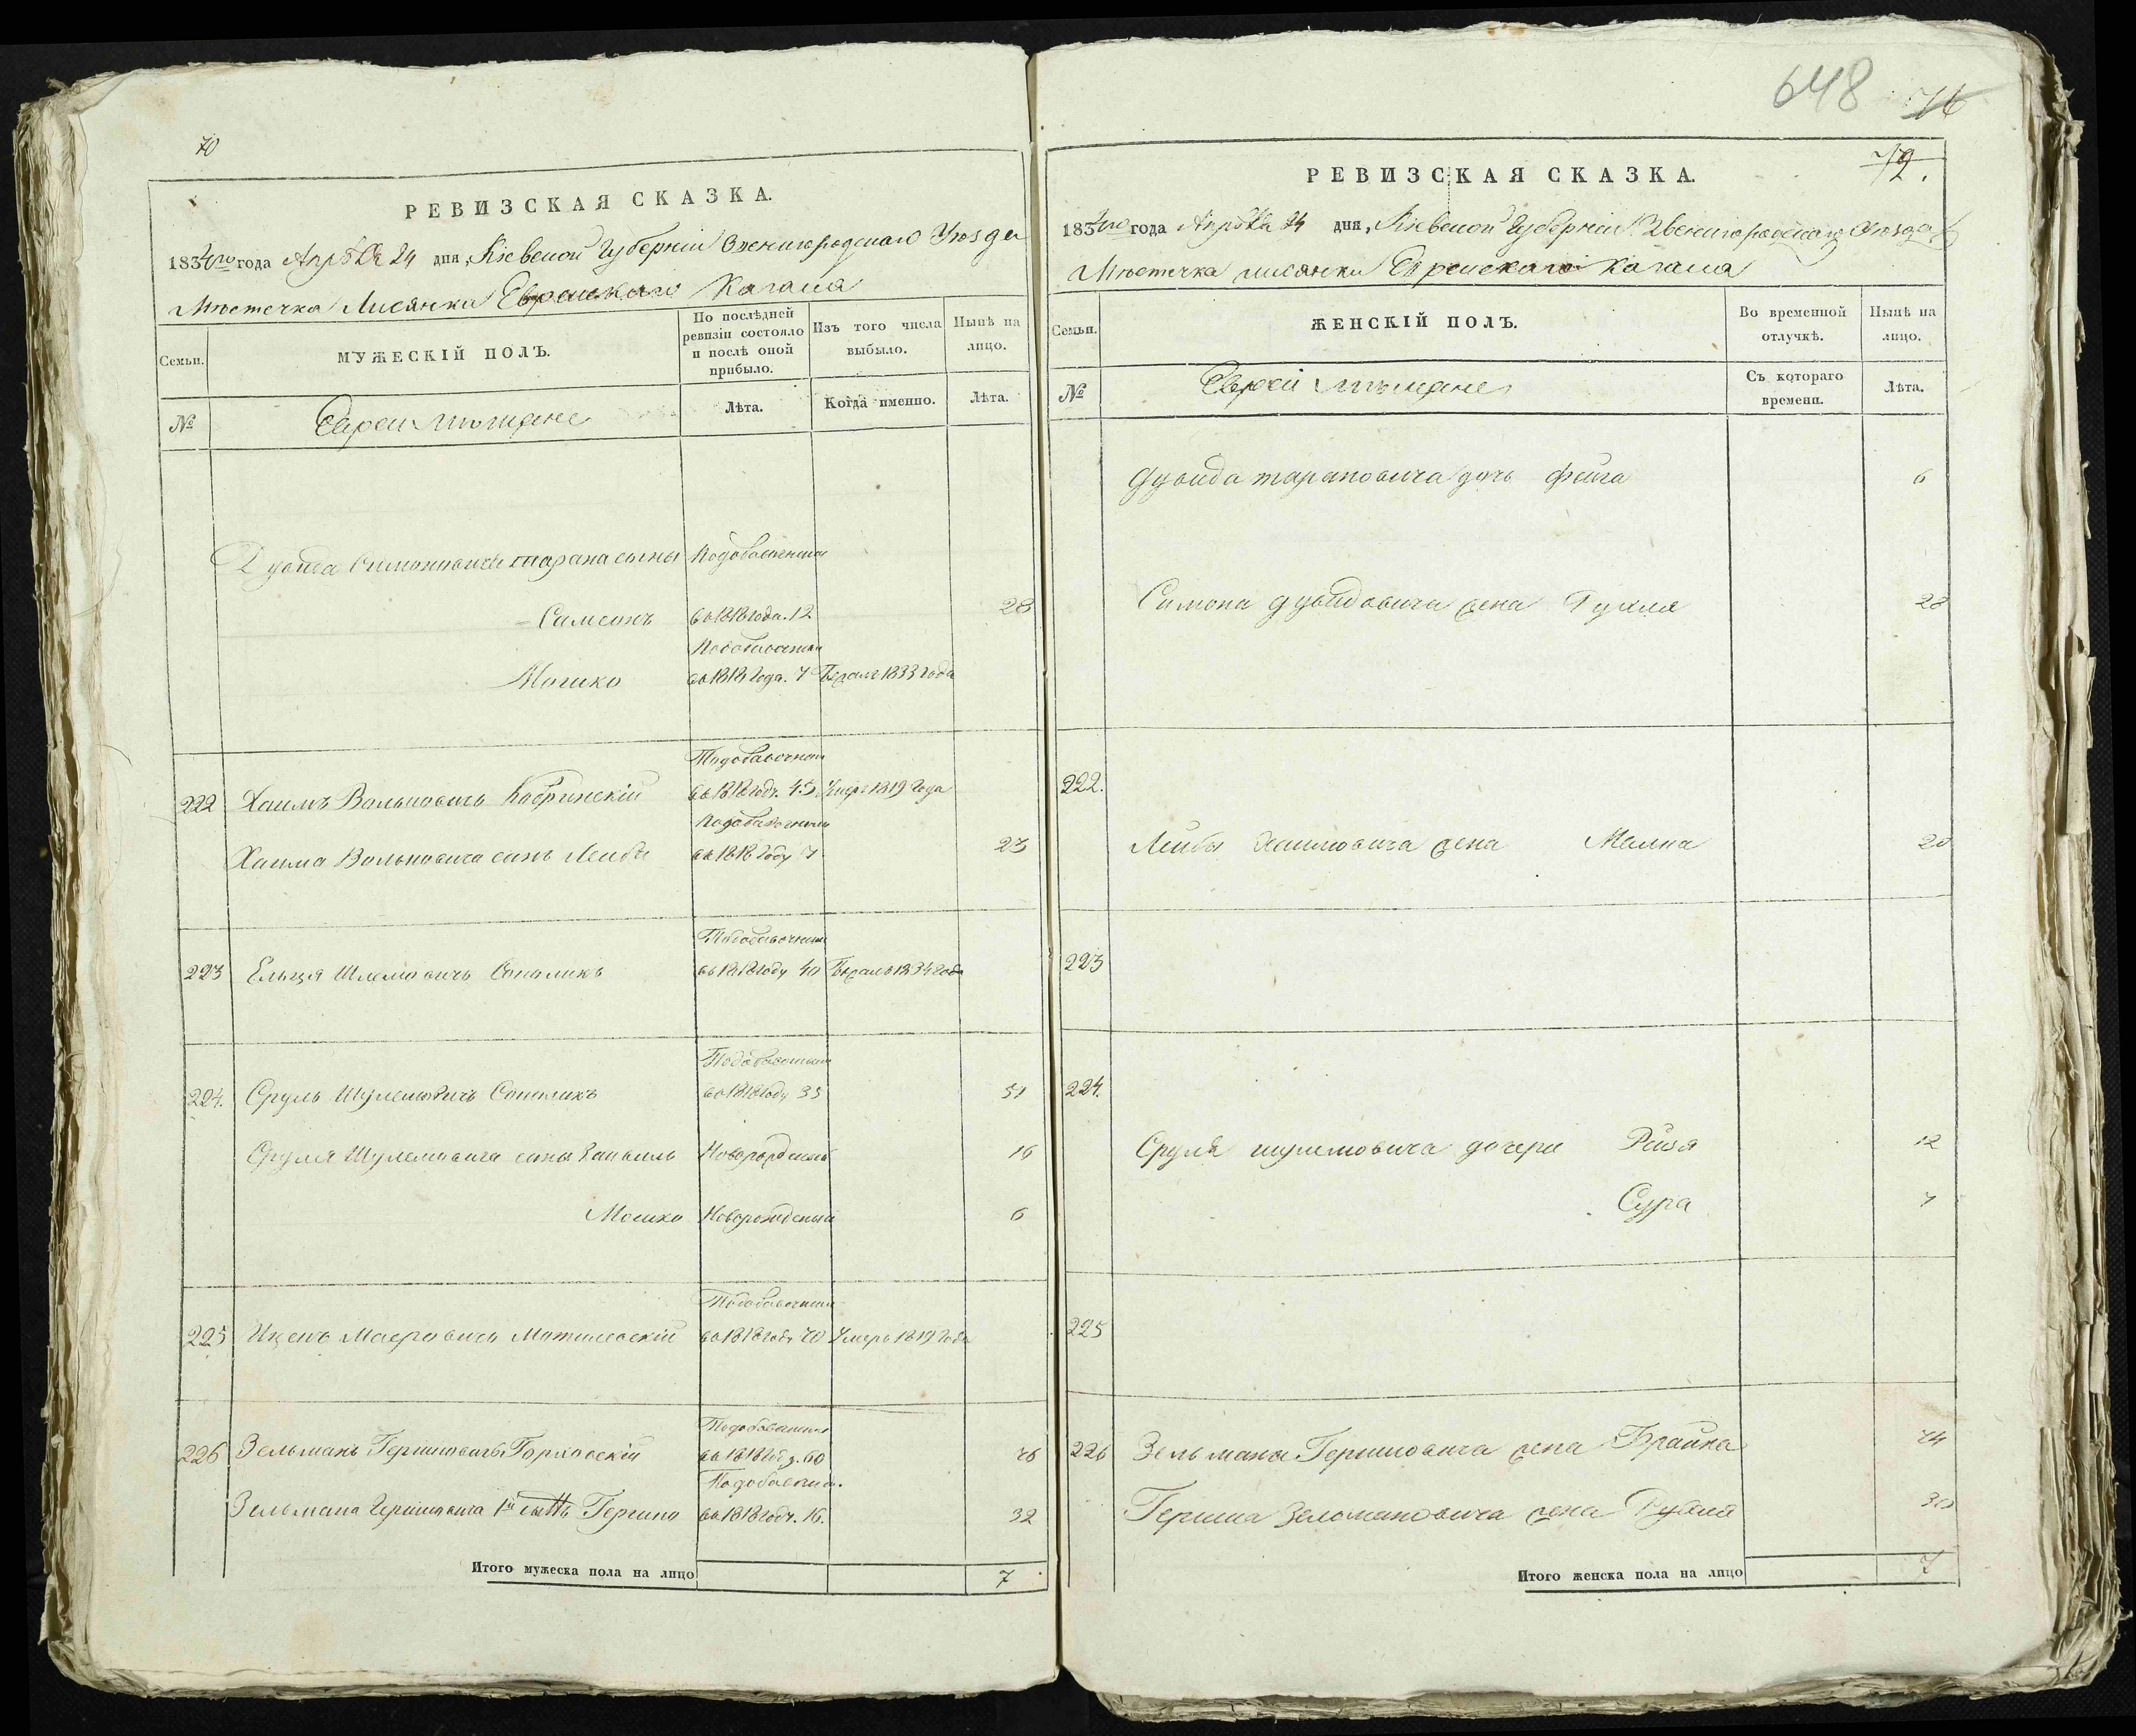 70
РЕВИЗСКАЯ СКАЗКА.
1834го года Апрѣля 24 дня, Кіевской Губерніи Звенигородскаго Уѣзда
Мѣстечка Лисянки Еврейскаго Кагала
Семьи.
МУЖЕСКІЙ ПОЛЪ.
По послѣдней ревизіи состояло и послѣ оной прибыло.
Изъ того числа выбыло.
Нынѣ на лицо.
№
Евреи мѣщане
Лѣта.
Когда именно.
Лѣта.
Дувида Симоновича Тарана сыны
Самсонъ въ 1818 года. 12 28
Мошко въ 1818 года. 7 Бежалъ 1833 года
222 Хаимъ Вольковичъ въ 1818 годѣ. 45 Умеръ 1819 года
Хаима Вольковича сынъ Лейба въ 1818 году 7 23
223 Шлемовичъ въ 1818 году 40 Бежалъ 1834 года
224. Сруль Шулемовичъ въ 1818 году 35 51
Сруля Шулемовича сыны Новорожденный 16
Мошко Новорожденный 6
225 Маеровичъ въ 1818 годѣ 70 Умеръ 1819 года
226 Зельманъ Гершковичъ въ 1818 год. 60 76
Зельмана Гершковича 1й сынъ Гершко въ 1818 годѣ. 16. 32
Итого мужеска пола на лицо 7
648 76
72.
РЕВИЗСКАЯ СКАЗКА.
1834го года Апрѣля 24 дня, Кіевской Губерніи Звенигородскаго Уѣзда
Мѣстечка Лисянки Еврейскаго Кагала
Семьи.
ЖЕНСКІЙ ПОЛЪ.
Во временной отлучкѣ.
Нынѣ на лицо.
№
Евреи мѣщане
Съ котораго времени.
Лѣта.
Дувида Тарановича дочь Фейга 6
Симона Дувидовича жена 28
222.
Лейбы Хаимовича жена Малка 20
223
224.
Сруля Шулемовича дочери Рейзя 12
Сура 7
225
226 Зельмана Гершковича жена Брайна 74
Гершка Зельмановича жена 30
Итого женска пола на лицо 7